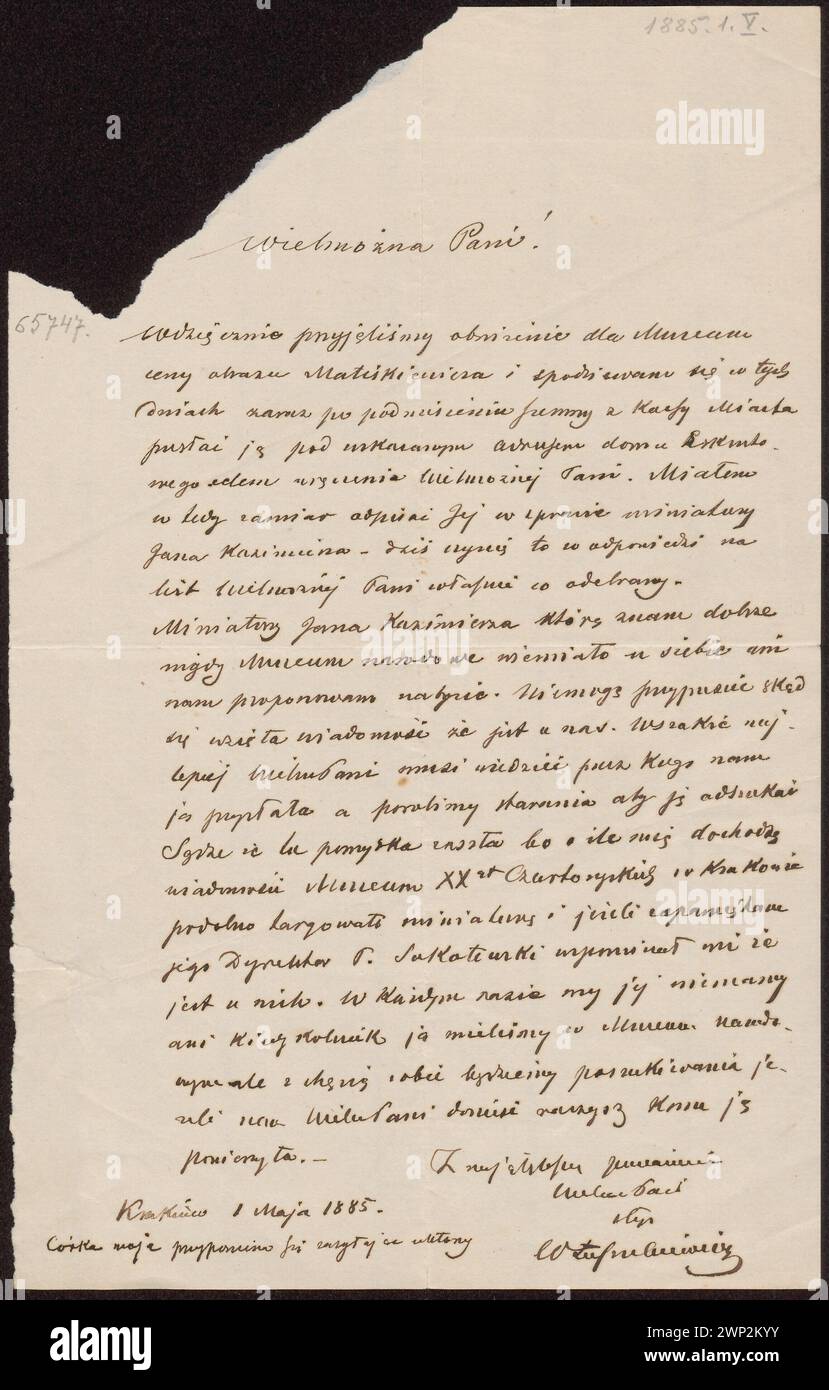 1885. 1. V.
65747.
Wielmożna Pani!
Wdzięcznie przyjęliśmy obniżenie dla Muzeum
ceny obrazu i spodziewam się w tych
dniach zaraz po podniesieniu summy z Kassy Miasta
posłać ją pod wskazanym adresem domu
wego celem wręczenia Wielmożnej Pani. Miałem
w tedy zamiar odpisać Jej w sprawie miniatury
Jana Kazimierza - dziś czynię to w odpowiedzi na
list Wielmożnej Pani właśnie co odebrany.
Miniatury Jana Kazimierza którą znam dobrze
nigdy Muzeum narodowe niemiało u siebie ani
nam proponowano nabycie. Niemogę przypuścić skąd
się wzięła wiadomość że jest u nas. Wszakże naj-
lepiej WielmPani musi wiedzieć przez kogo nam
ją przysłała a porobimy starania aby ją odszukać
Sądzę że tu pomyłka zaszła bo o ile mię dochodzą
wiadomości Muzeum XXąt Czartoryskich w Krakowie
podobno targowało miniaturę i jeżeli zapamiętam
jego Dyrektor P. Sokołowski wspominał mi że
jest u nich. W Każdym razie my jej niemamy
ani Kiedykolwiek ją mieliśmy w Muzeum narodo-
wym ale z chęcią robić będziemy poszukiwania je-
żeli nam WielmPani donieść raczysz komu ją
poruczyła. -
Z najgłębszym poważaniem
Wielm Pani
sługa
Kraków 1 Maja 1885.
Córka moja przypomina się zasyłając ukłony
WŁuszczkiewicz
alamy
Image ID: 2WP2KYY
www.alamy.com